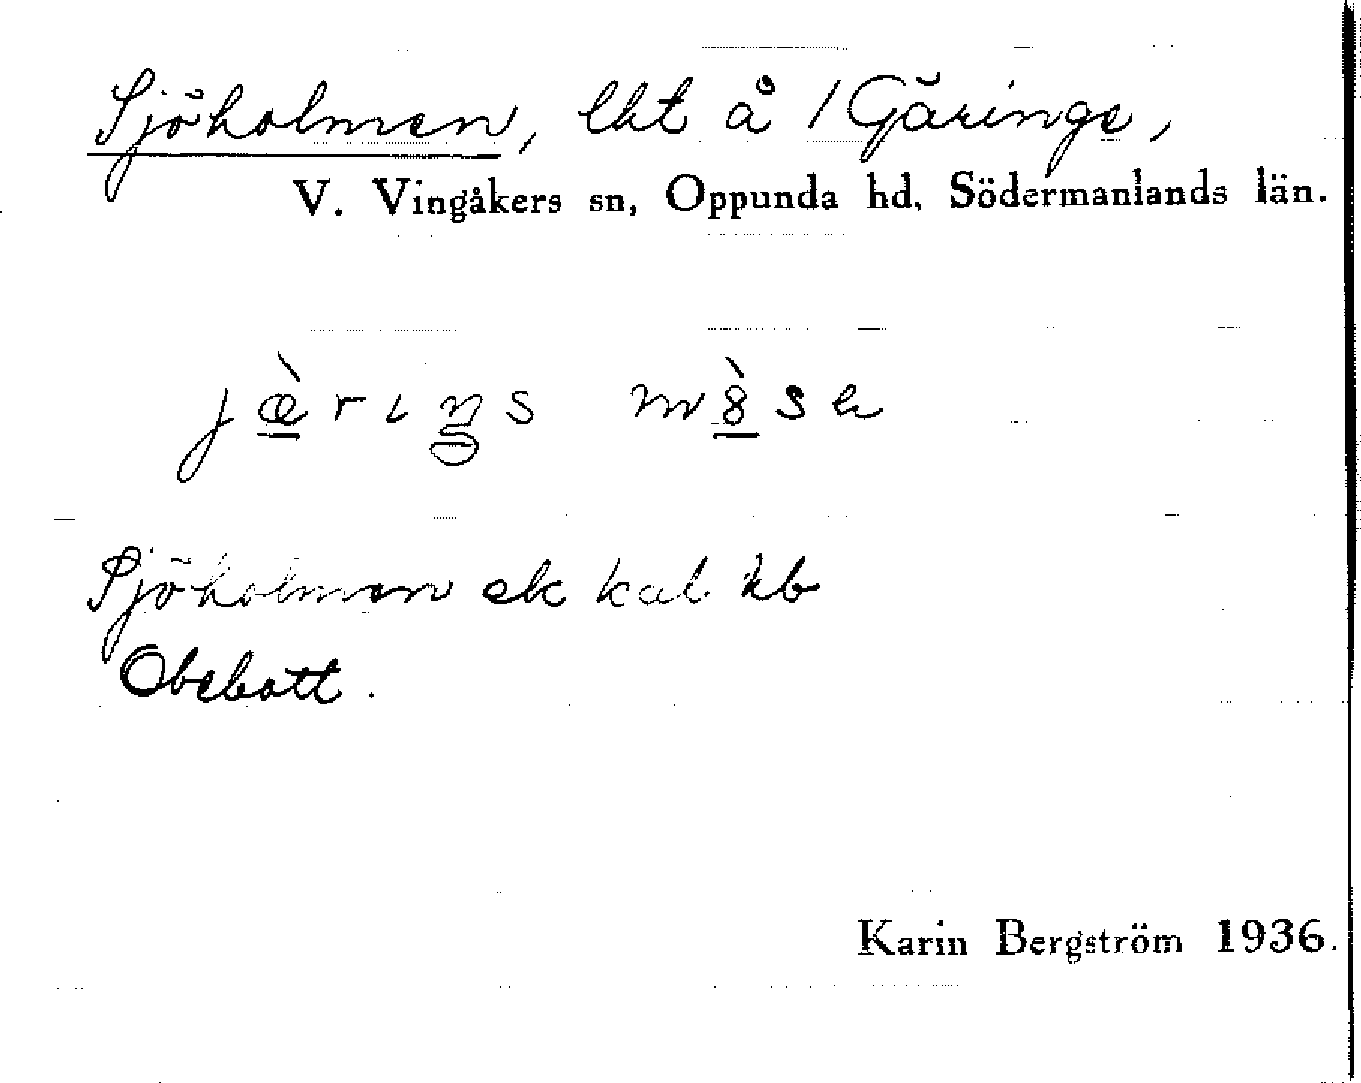 Sjöholmen, lht å 1 Gärings,
V. Vingåkers sn, Oppunda hd, Södermanlands län.
jæ̀rɩŋs m8̀sa
Sjöholmen ek kal hb
Obebott.
Karin Bergström 1936.